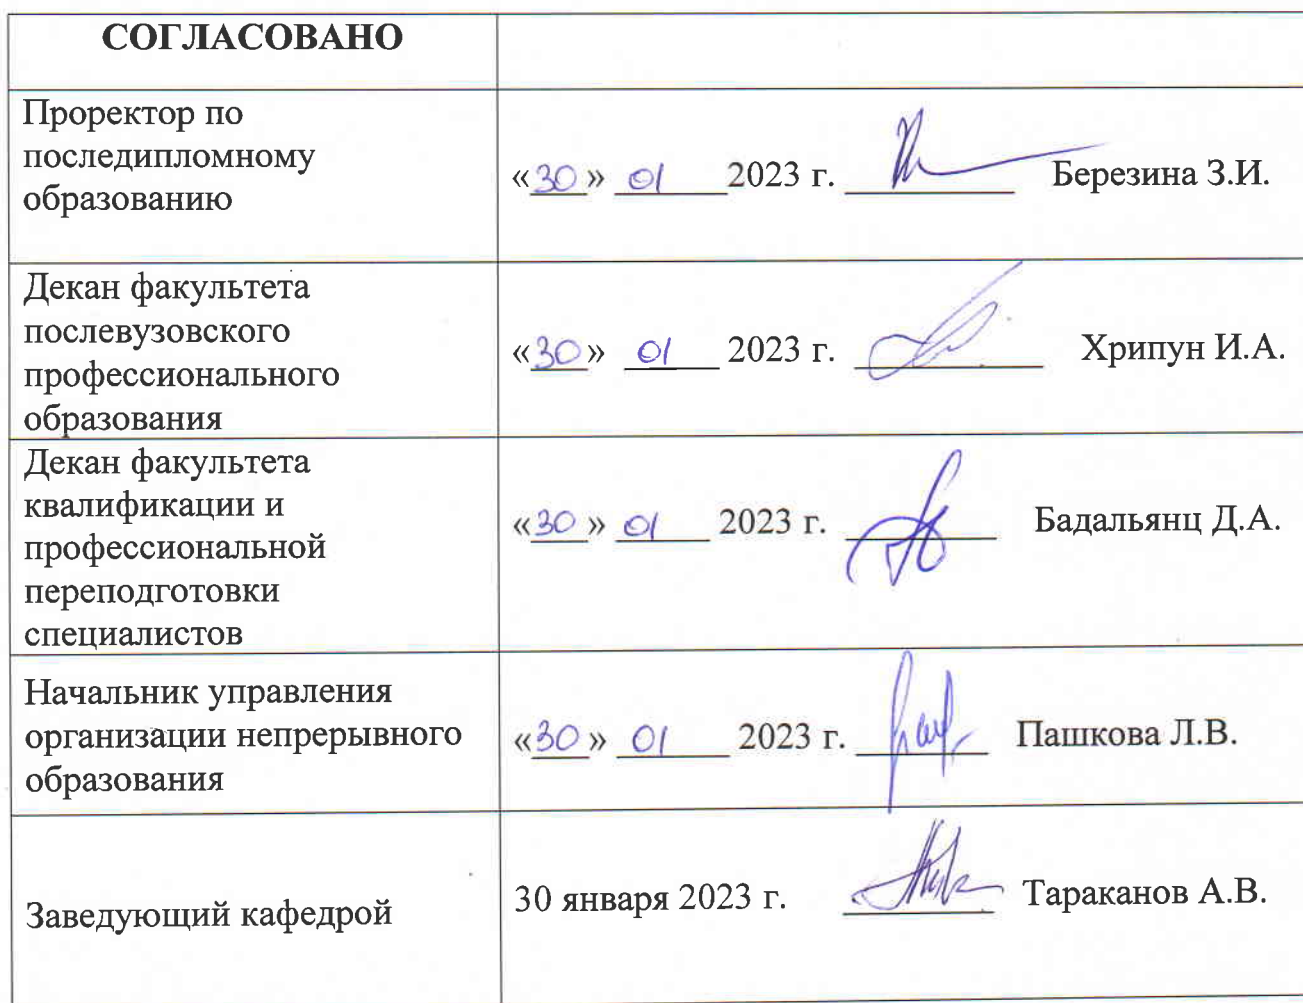 СОГЛАСОВАНО
Проректор по
последипломному
образованию
«30» 01 2023 г. Березина З.И.
Декан факультета
послевузовского
профессионального
образования
«30» 01 2023 г. Хрипун И.А.
Декан факультета
квалификации и
профессиональной
переподготовки
специалистов
«30» 01 2023 г. Бадальянц Д.А.
Начальник управления
организации непрерывного
образования
«30» 01 2023 г. Пашкова Л.В.
Заведующий кафедрой
30 января 2023 г. Тараканов А.В.